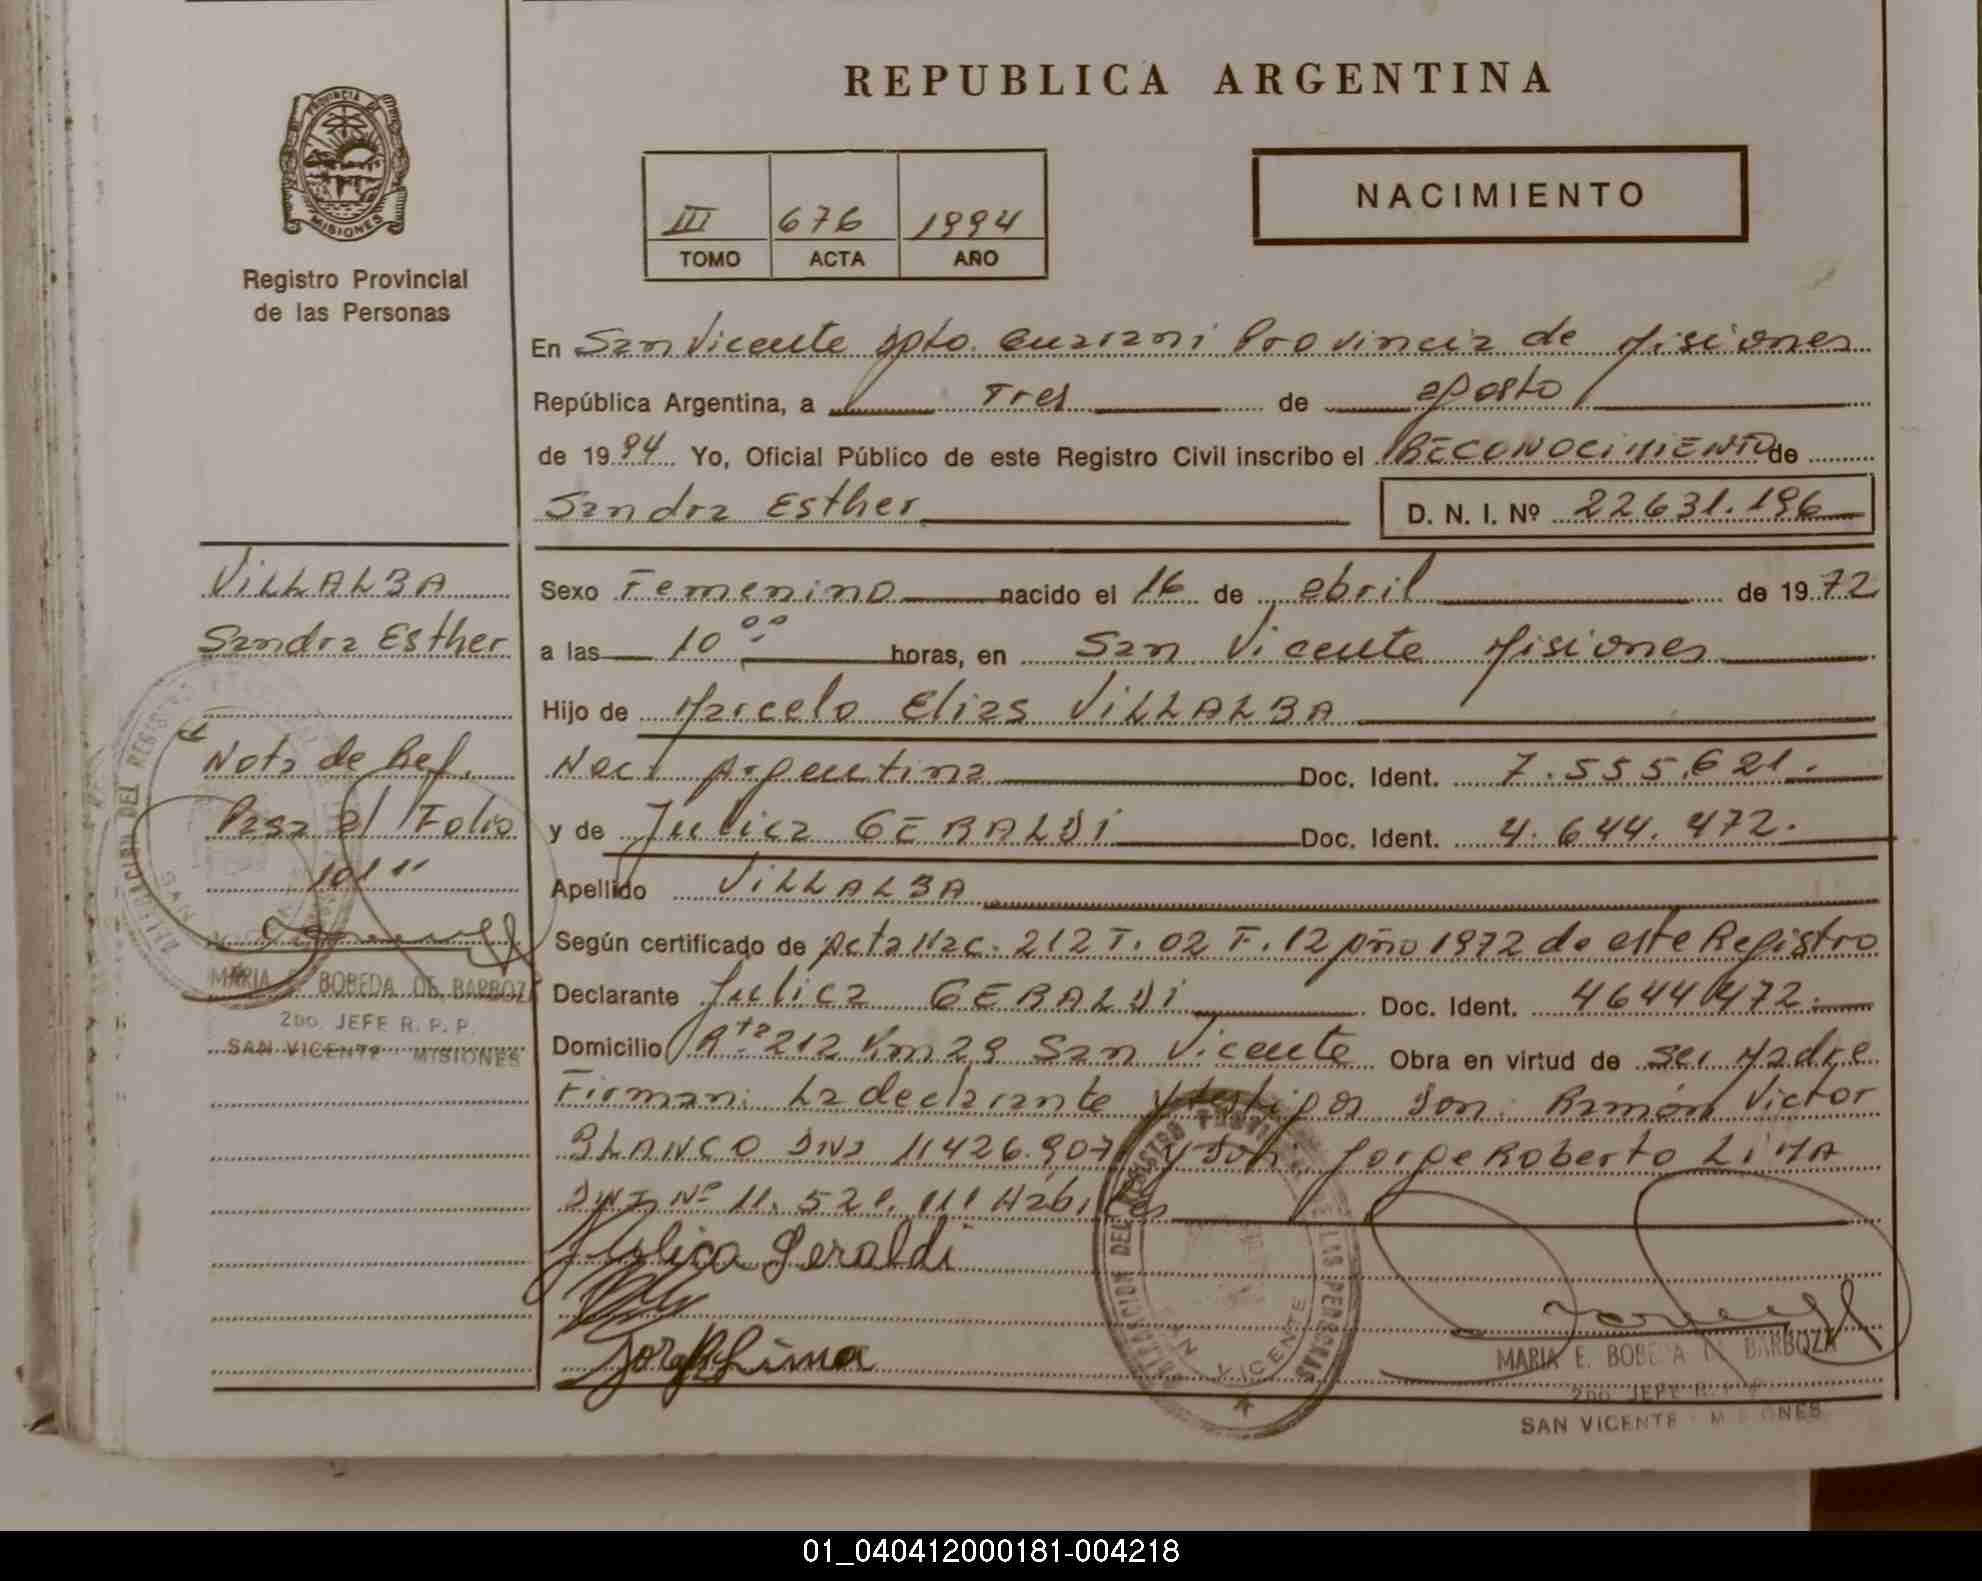 REPUBLICA ARGENTINA
PROVINCIA DE
MISIONES
Registro Provincial
de las Personas
III 676 1994
TOMO ACTA AÑO
NACIMIENTO
En San Vicente Dpto. Guarani Provincia de Misiones
República Argentina, a Tres de agosto
de 1994 Yo, Oficial Público de este Registro Civil inscribo el RECONOCIMIENTO de
Sandra Esther D. N. I. Nº 22631.196
VILLALBA
Sandra Esther
Nota de Ref.
Pasa al Folio
101"
MARIA E. BOBEDA DE BARBOZA
2DO. JEFE R. P. P.
SAN VICENTE - MISIONES
Sexo Femenino nacido el 16 de abril de 1972
a las 10 00 horas, en San Vicente Misiones
Hijo de Marcelo Elias VILLALBA
Nac. Argentina Doc. Ident. 7.555.621.
y de Julica GERALDI Doc. Ident. 4.644.472.
Apellido VILLALBA
Según certificado de Acta Nac. 212 T. 02 F. 12 Año 1972 de este Registro
Declarante Julica GERALDI Doc. Ident. 4644472.
Domicilio Rta 212 Km 29 San Vicente Obra en virtud de ser Madre
Firman: La declarante y testigos Don: Ramón Victor
BLANCO DNI 11426.907 y Don Jorge Roberto LIMA
DNI Nº 11.521.111 Hábiles
Julica Geraldi
Jorge R Lima
DEL REGISTRO
LAS PERSONAS
SAN VICENTE
MARIA E. BOBEDA DE BARBOZA
2DO JEFE R. P. P.
SAN VICENTE - MISIONES
01_040412000181-004218